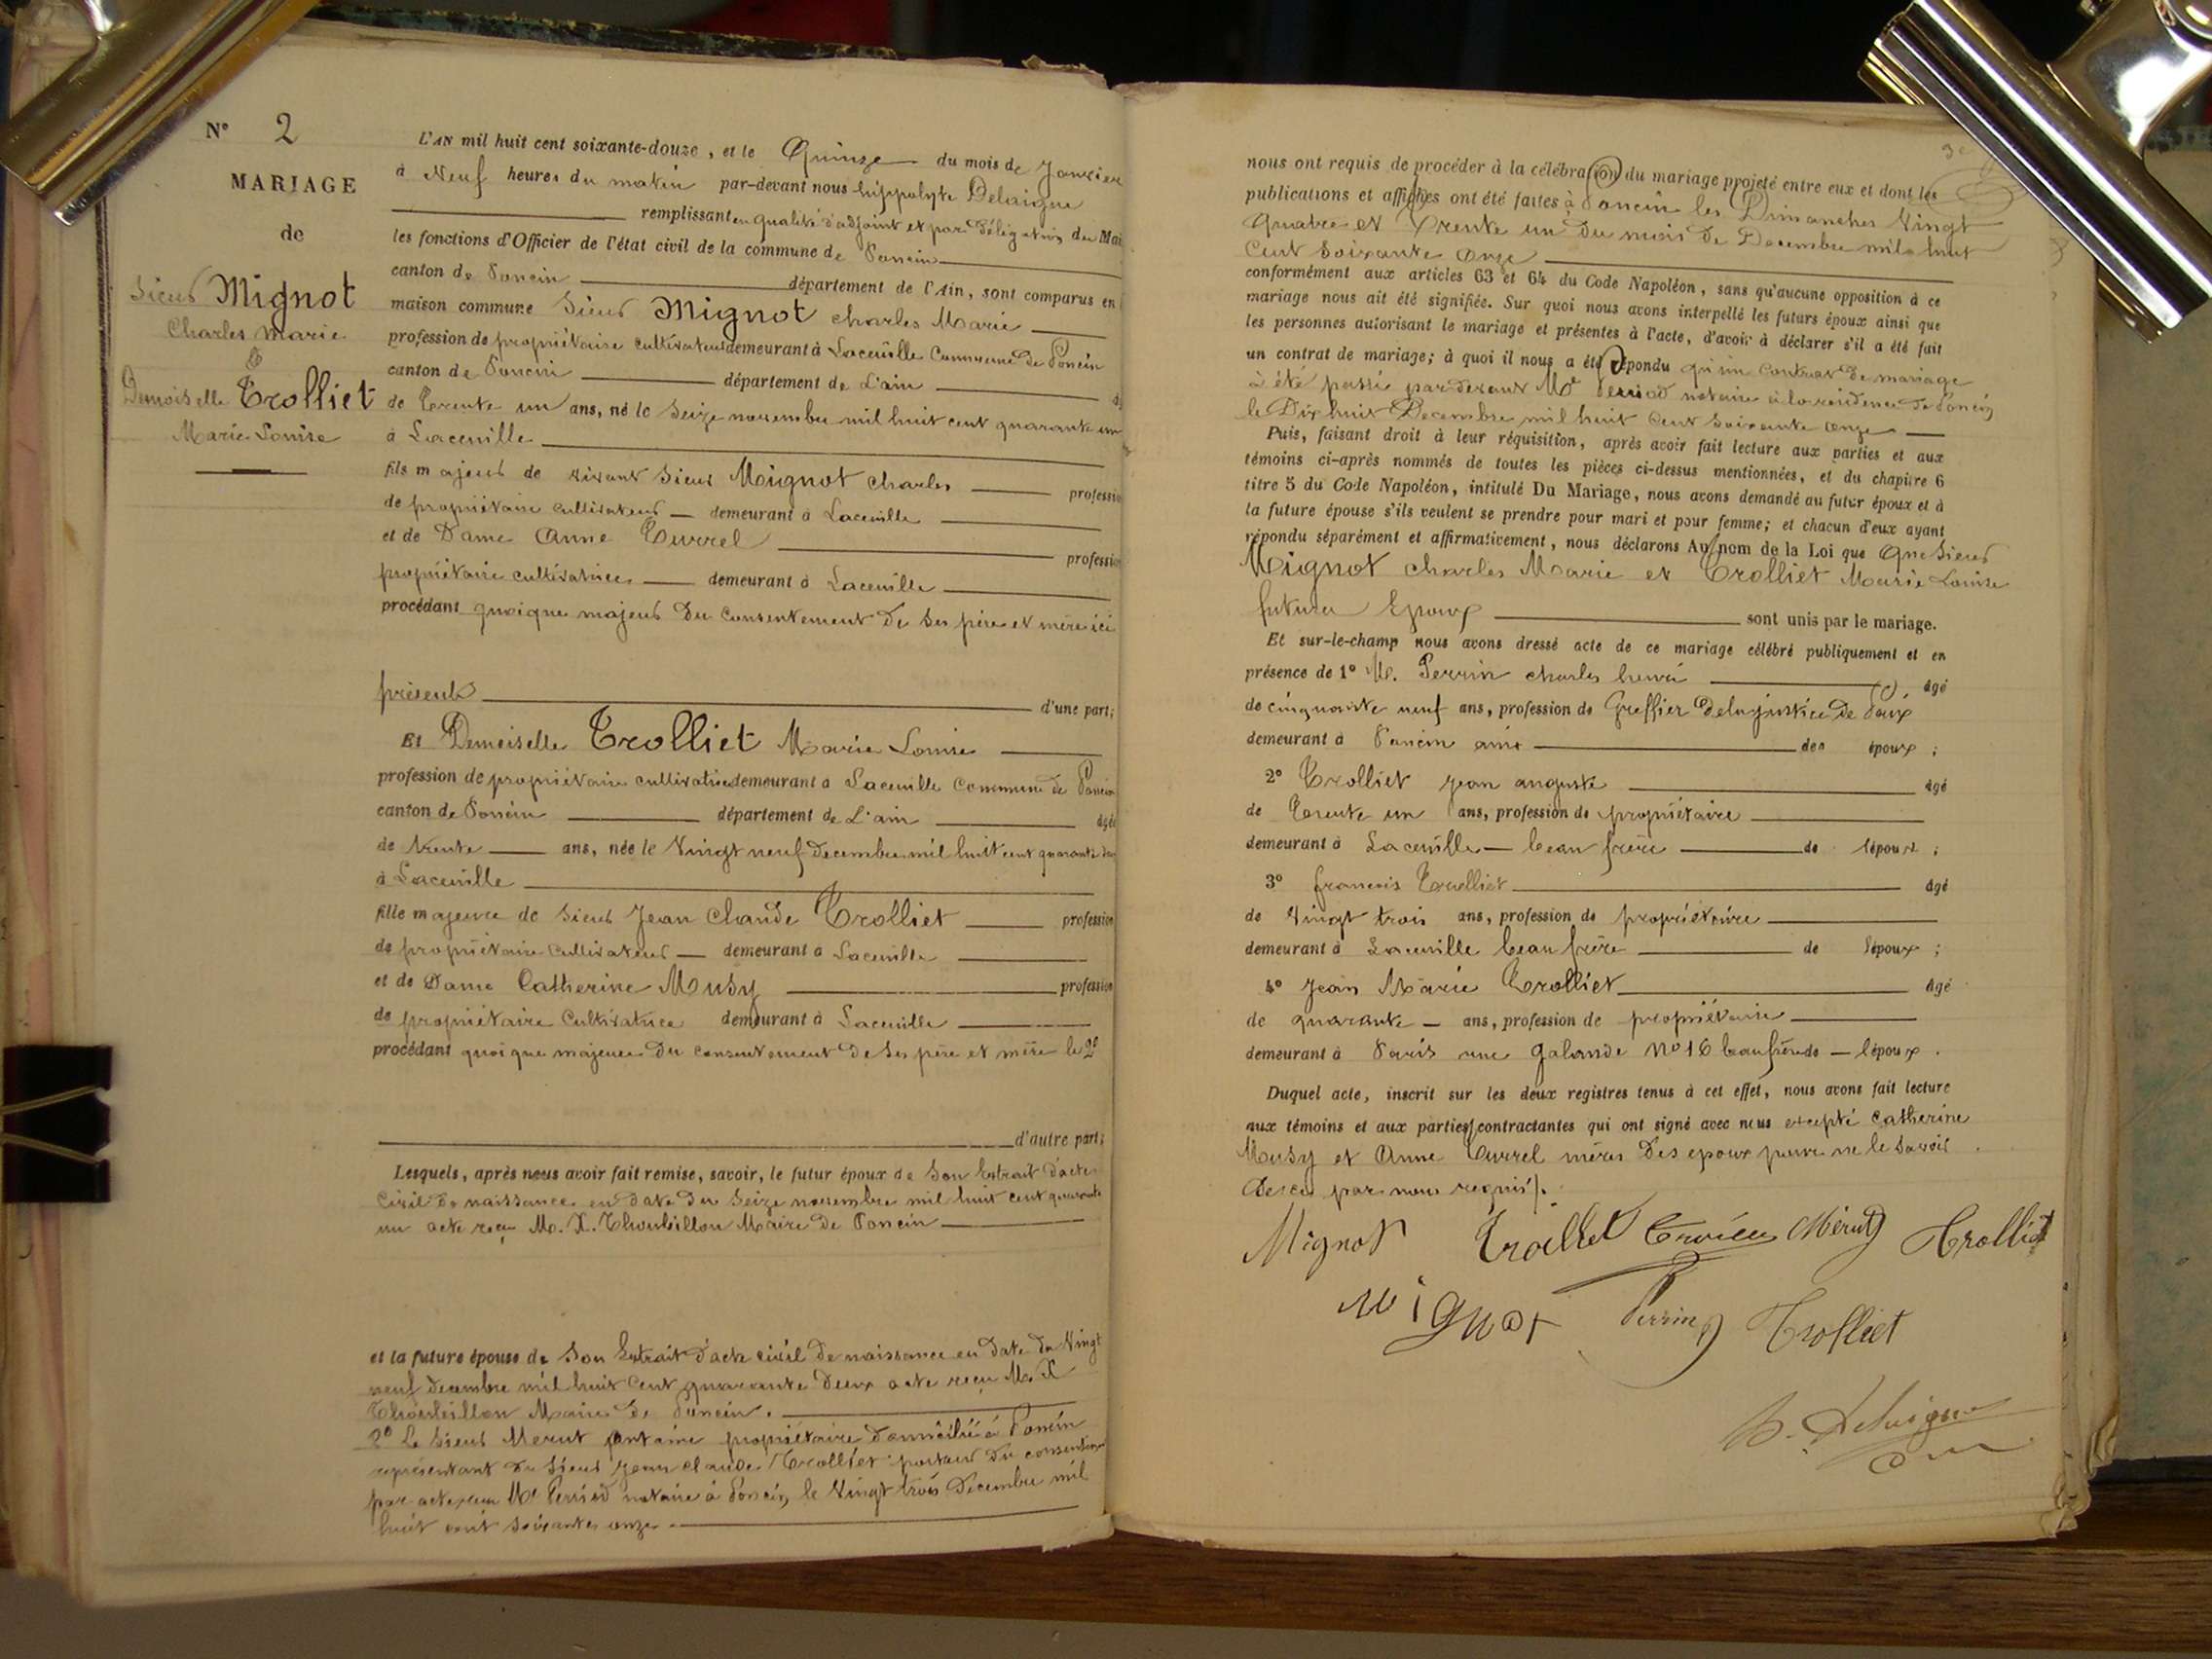 N° 2
MARIAGE
de
Sieur Mignot
Charles Marie
&
Demoiselle Trolliet
Marie Louise
L'AN mil huit cent soixante-douze, et le Quinze du mois de Janvier
à Neuf heures du matin par-devant nous hippolyte Delaigue
remplissant en qualité d'adjoint et par délégation du Mai
les fonctions d'Officier de l'état civil de la commune de Poncin
canton de Poncin département de l'Ain, sont comparus en
maison commune Sieur Mignot charles Marie
profession de propriétaire cultivateur demeurant à Laceuille Commune de Poncin
canton de Poncin département de L'ain
de Trente un ans, né le Seize novembre mil huit cent quarante un
à Laceuille
fils majeur de vivant Sieur Mignot charles professio
de propriétaire cultivateur demeurant à Laceuille
et de Dame Anne Turrel professio
propriétaire cultivatrice demeurant à Laceuille
procédant quoique majeur du consentement de ses père et mère ici
présents d'une part;
Et Demoiselle Trolliet Marie Louise
profession de propriétaire cultivatrice demeurant à Laceuille Commune de Poncin
canton de Poncin département de L'ain âgée
de trente ans, née le Vingt neuf decembre mil huit cent quarante deux
à Laceuille
fille majeure de Sieur Jean Claude Trolliet profession
de propriétaire cultivateur demeurant à Laceuille
et de Dame Catherine Musy profession
de propriétaire Cultivatrice demeurant à Laceuille
procédant quoique majeure du consentement de ses père et mère le 2°
d'autre part;
Lesquels, après nous avoir fait remise, savoir, le futur époux de Son Extrait d'acte
Civil de naissance en date du Seize novembre mil huit cent quarante
un acte reçu M. X. Thoubillon Maire de Poncin
et la future épouse de Son Extrait d'acte civil de naissance en date du Vingt
neuf decembre mil huit Cent quarante deux acte reçu M. X
Thoubillon Maire de Poncin.
2° Le Sieur Merut Antoine propriétaire domicilié à Poncin
représentant du Sieur Jean Claude Trolliet porteur du consentement
par acte reçu Me Perriod notaire à Poncin le Vingt trois Decembre mil
huit cent soixante onze
nous ont requis de procéder à la célébration du mariage projeté entre eux et dont les
publications et affiches ont été faites à Poncin les Dimanches Vingt
Quatre et Trente un du mois de Decembre mil huit
Cent Soixante Onze
conformément aux articles 63 et 64 du Code Napoléon, sans qu'aucune opposition à ce
mariage nous ait été signifiée. Sur quoi nous avons interpellé les futurs époux ainsi que
les personnes autorisant le mariage et présentes à l'acte, d'avoir à déclarer s'il a été fait
un contrat de mariage; à quoi il nous a été répondu qu'un Contrat de mariage
à été passé par devant Me Perriod notaire à la résidence de Poncin
le Dix huit Decembre mil huit Cent Soixante onze
Puis, faisant droit à leur réquisition, après avoir fait lecture aux parties et aux
témoins ci-après nommés de toutes les pièces ci-dessus mentionnées, et du chapitre 6
titre 5 du Code Napoléon, intitulé Du Mariage, nous avons demandé au futur époux et à
la future épouse s'ils veulent se prendre pour mari et pour femme; et chacun d'eux ayant
répondu séparément et affirmativement, nous déclarons Au nom de la Loi que Que Sieur
Mignot Charles Marie et Trolliet Marie Louise
futurs Epoux sont unis par le mariage.
Et sur-le-champ nous avons dressé acte de ce mariage célébré publiquement et en
présence de 1° M. Perrin charles henri âgé
de cinquante neuf ans, profession de Greffier de la justice de Paix
demeurant à Poncin ami des époux;
2° Trolliet Jean auguste âgé
de Trente un ans, profession de propriétaire
demeurant à Laceuille beau frère de l'époux;
3° francois Trolliet âgé
de Vingt trois ans, profession de propriétaire
demeurant à Laceuille beau frère de l'époux;
4° Jean Marie Trolliet âgé
de quarante ans, profession de propriétaire
demeurant à Paris rue Galande N° 16 beau frère de l'époux.
Duquel acte, inscrit sur les deux registres tenus à cet effet, nous avons fait lecture
aux témoins et aux parties contractantes qui ont signé avec nous excepté Catherine
Musy et Anne Turrel mères des epoux pour ne le Savoir
de ce par nous requis.
Mignot Trolliet Merut Trolliet
Mignot Perrin Trolliet
H. Delaigue